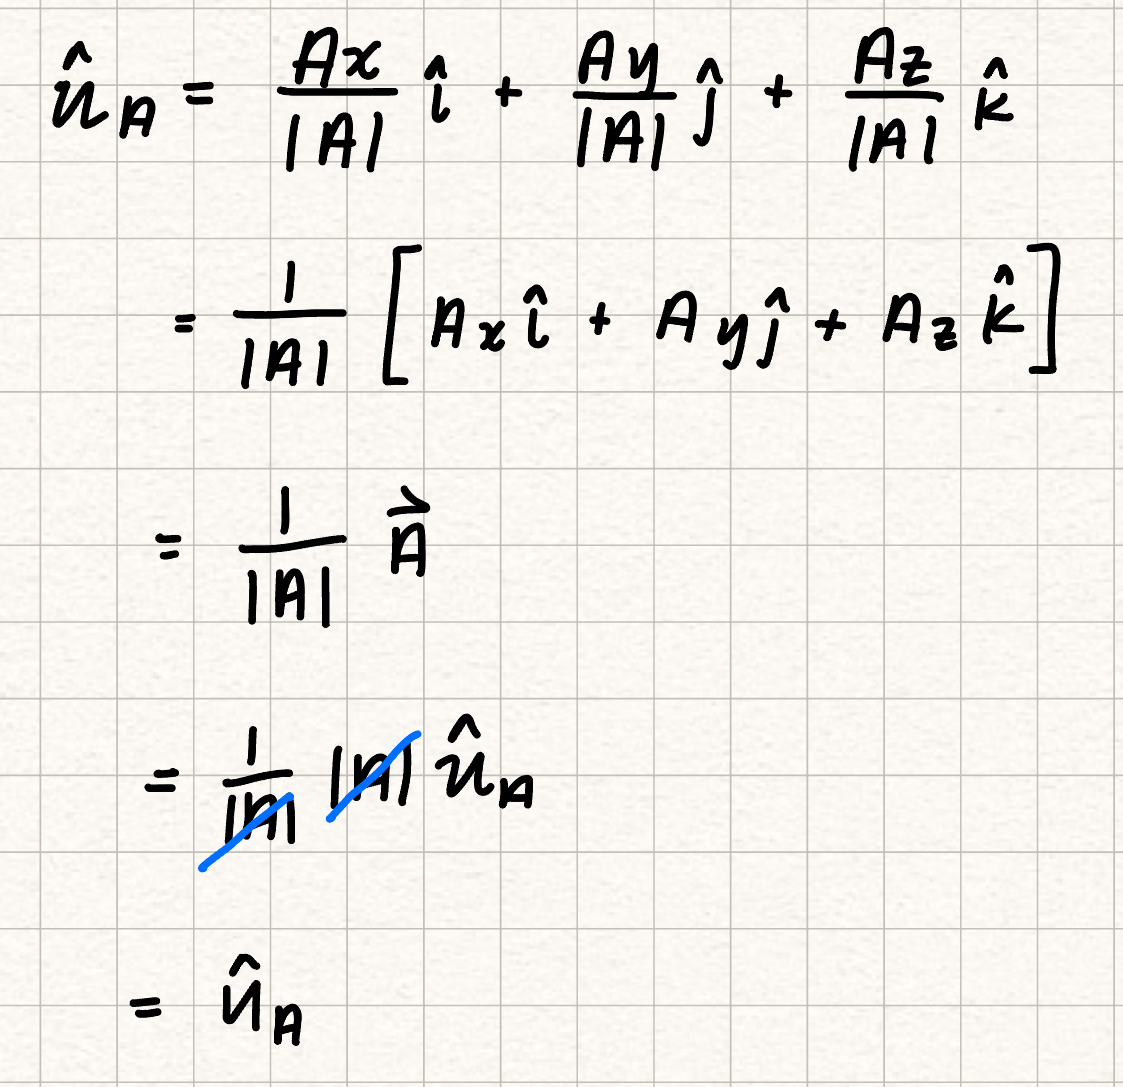 û_A = Ax/|A| î + Ay/|A| ĵ + Az/|A| k̂
= 1/|A| [A_x î + A_y ĵ + A_z k̂]
= 1/|A| A⃗
= 1/|A| |A| û_A
= û_A